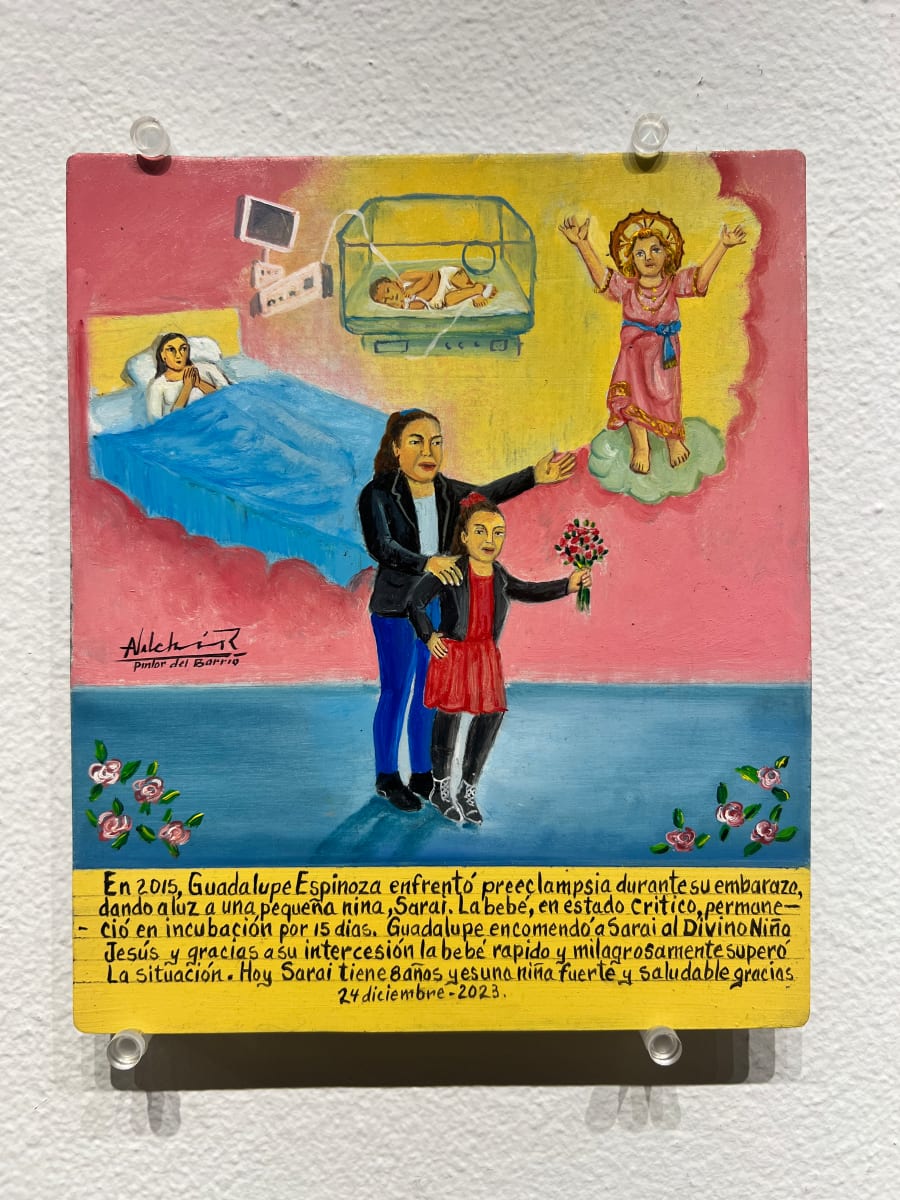 Pintor del Barrio
En 2015, Guadalupe Espinoza enfrentó preeclampsia durante su embarazo,
dando a luz a una pequeña nina, Sarai. La bebé, en estado critico, permane-
- ció en incubación por 15 dias. Guadalupe encomendó a Sarai al Divino Niño
Jesús y gracias a su intercesión la bebé rapido y milagrosamente superó
La situación. Hoy Sarai tiene 8 años y es una niña fuerte y saludable gracias
24 diciembre - 2023.